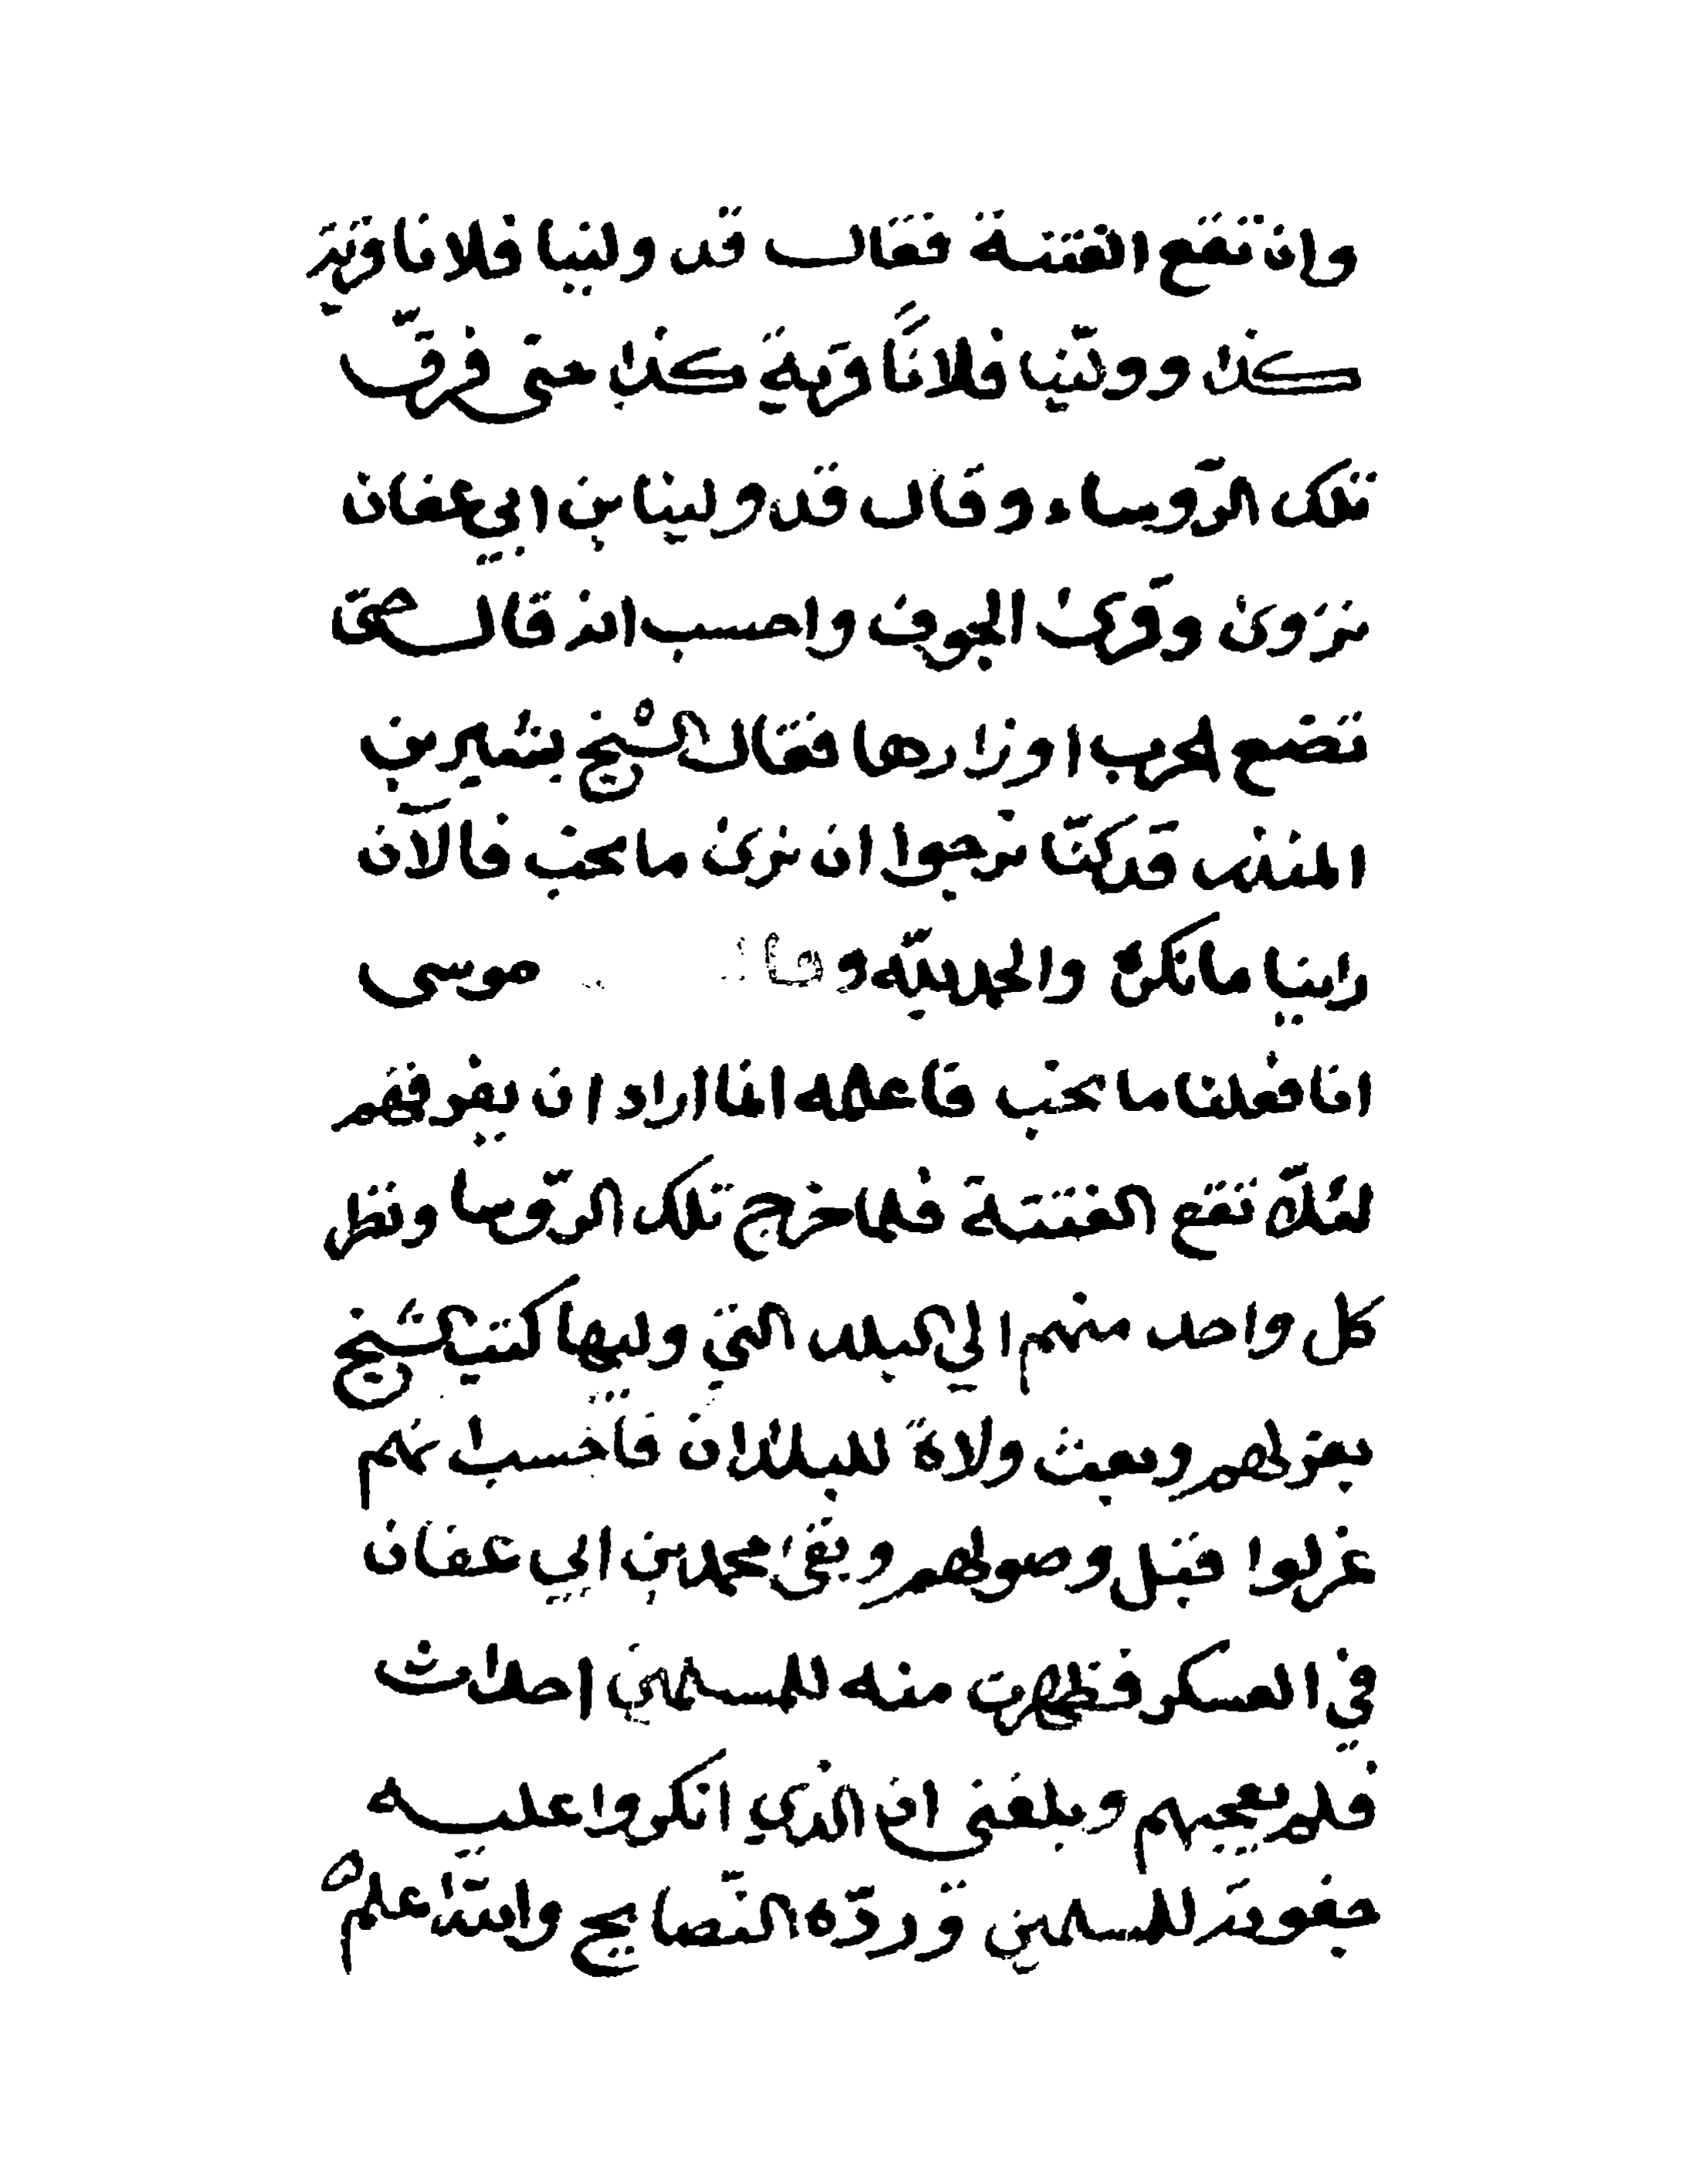 وان تقع الفتنة فقال قد ولينا فلانا قرية
كذا وولّينا فلانًا قرية كذا حتى فرّق
تلك الرّوساء وقال قد ولينا بن ابي عفان
نزوى وقرى الجوف واحسب انه قال حتى
تضع الحرب اوزارها فقال الشيخ بشير بن
المنذر قد كنّا نرجوا ان نرى ما نحب فالآن
راينا ما نكره والحمد لله وقال موسى
انا فعلنا ما نحب فاعلمه انما اراد ان يفرقهم
لئلّا تقع الفتنة فلما خرج تلك الرّوسا ونظر
كل واحد منهم الي البلد التي وليها كتب الشيخ
بعزلهم وبعث ولاة للبلدان فاحسب انهم
عزلوا قبل وصولهم وبقى محمد بن ابي عفان
في العسكر فظهرت منه للمسلمين احداث
فلم يعجبهم وبلغنى ان الذي انكروا عليه
جفوته للمسلمين وردّه النّصايح والله اعلم